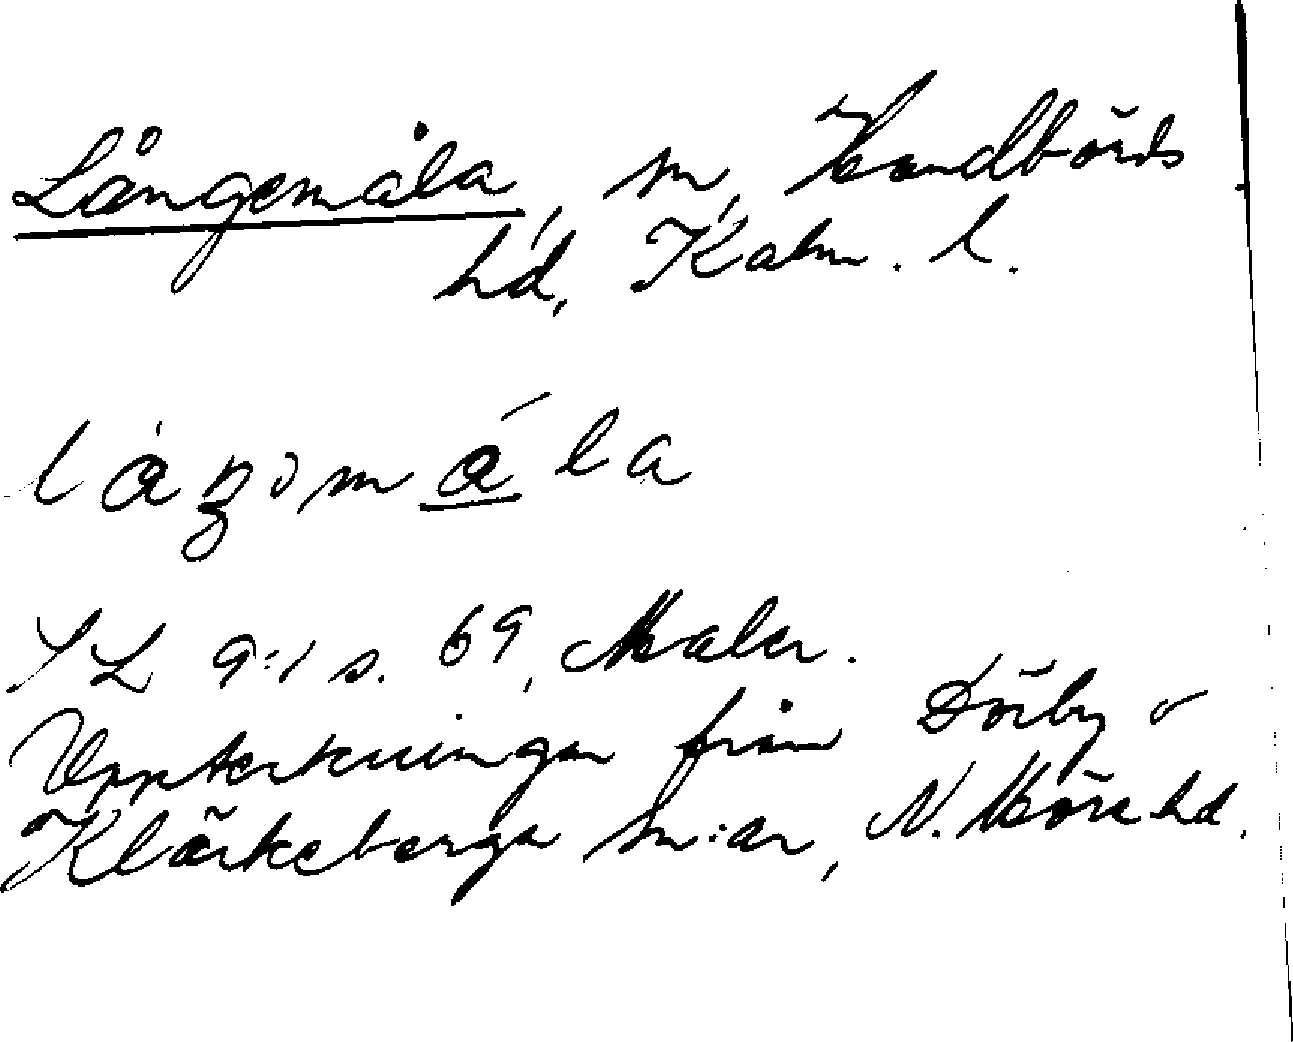 Långemåla, sn, Handbörds
hd, Kalm. l.
SL 9:1 s. 69, Maler.
Uppteckningar från Dörby o
Kläckeberga sn:ar, N. Möre hd.